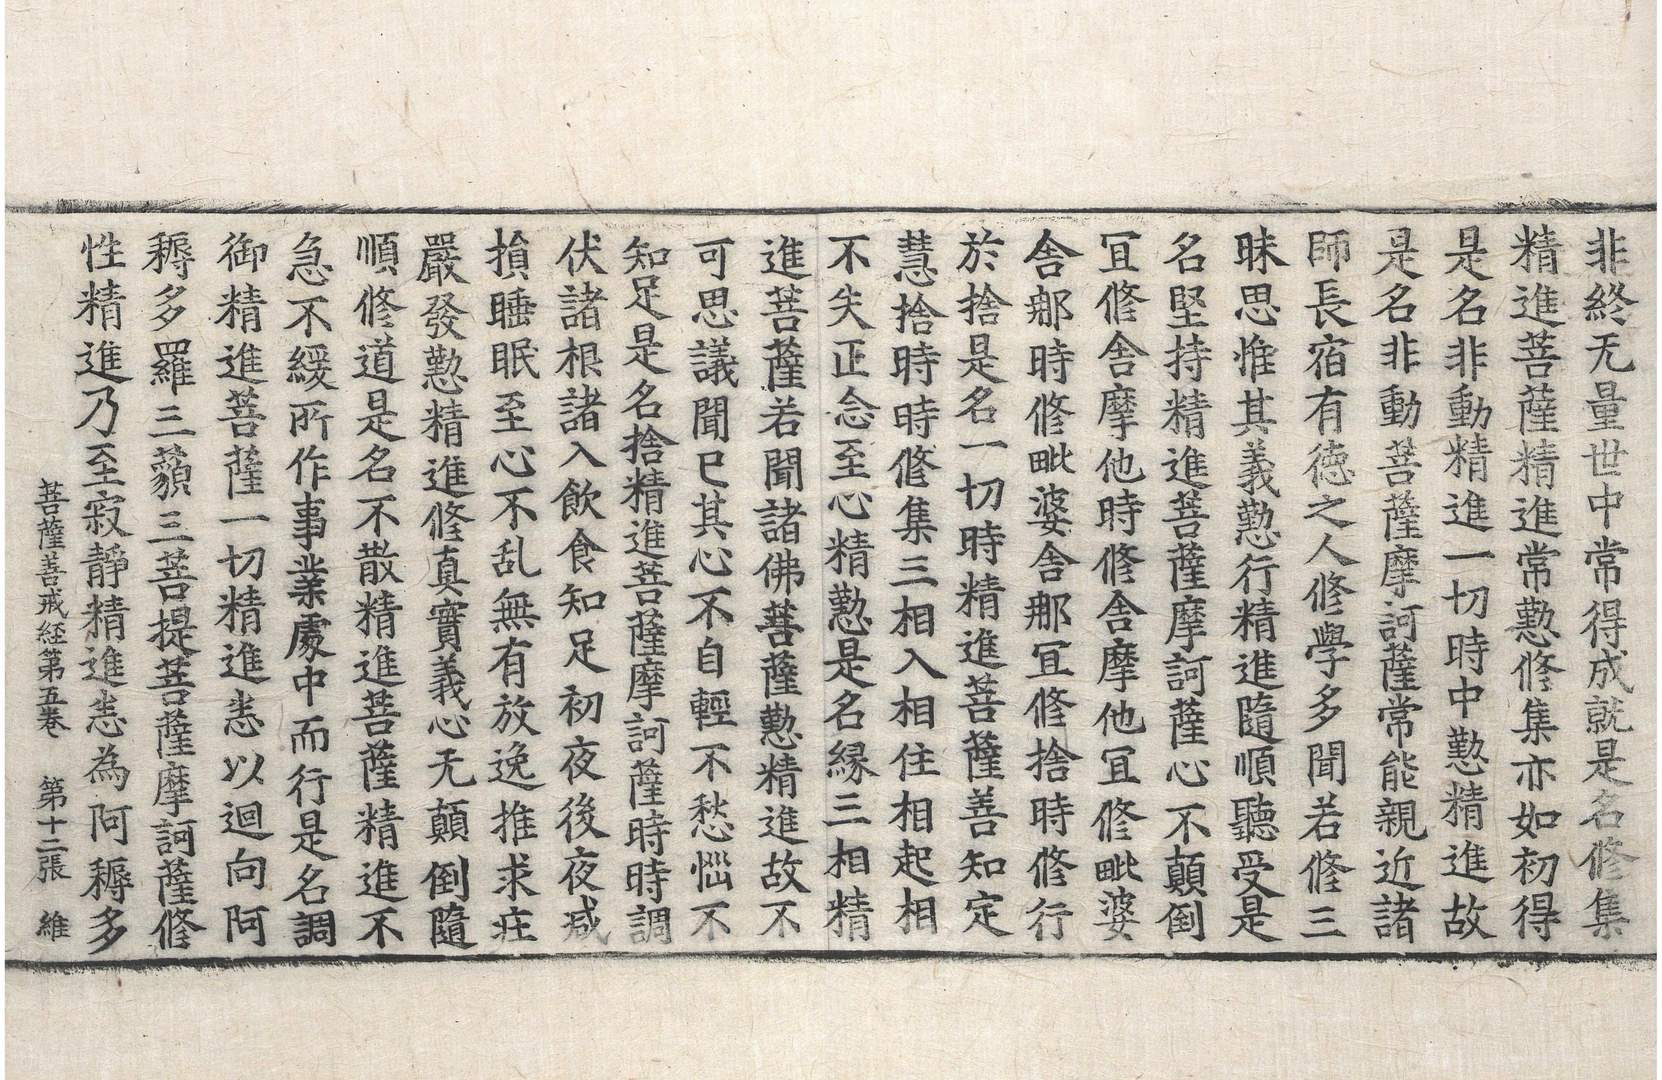 非終无量世中常得成就是名修集
精進菩薩精進常懃修集亦如初得
是名非動精進一切時中懃精進故
是名非動菩薩摩訶薩常能親近諸
師長宿有德之人修學多聞若修三
昧思惟其義懃行精進隨順聽受是
名堅持精進菩薩摩訶薩心不顛倒
冝修舍摩他時修舍摩他冝修毗婆
舍那時修毗婆舍那冝修捨時修行
於捨是名一切時精進菩薩善知定
慧捨時時修集三相入相住相起相
不失正念至心精懃是名縁三相精
進菩薩若聞諸佛菩薩懃精進故不
可思議聞已其心不自輕不愁惱不
知足是名捨精進菩薩摩訶薩時時調
伏諸根諸入飲食知足初夜後夜减
損睡眠至心不乱無有放逸推求庄
嚴發懃精進修真實義心无顛倒隨
順修道是名不散精進菩薩精進不
急不緩所作事業處中而行是名調
御精進菩薩一切精進悉以迴向阿
耨多羅三藐三菩提菩薩摩訶薩修
性精進乃至寂靜精進悉為阿耨多
菩薩善戒経第五巻 第十二張 維